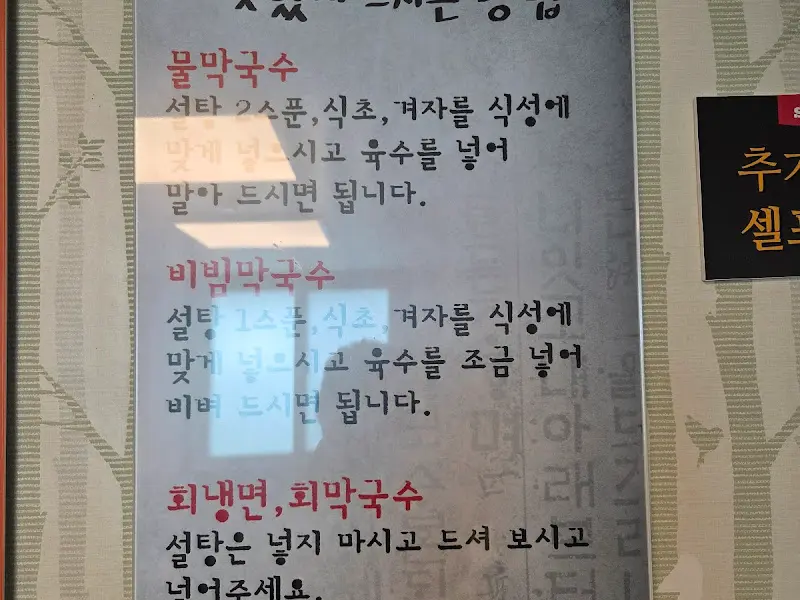 맛있게 드시는 방법
물막국수
설탕 2스푼,식초,겨자를 식성에
맞게 넣으시고 육수를 넣어
말아 드시면 됩니다.
비빔막국수
설탕 1스푼,식초,겨자를 식성에
맞게 넣으시고 육수를 조금 넣어
비벼 드시면 됩니다.
회냉면,회막국수
설탕은 넣지 마시고 드셔 보시고
넣어주세요.
추가
셀프